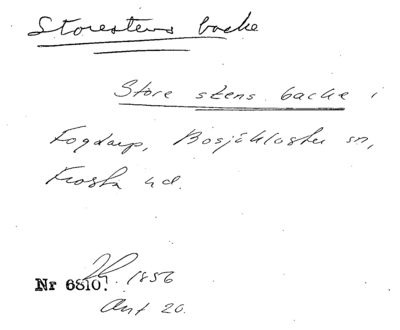 Storestens backe
Store stens backe i
Fogdarp, Bosjökloster sn,
Frosta hd.
1856
Nr 6810.
Ant 20.